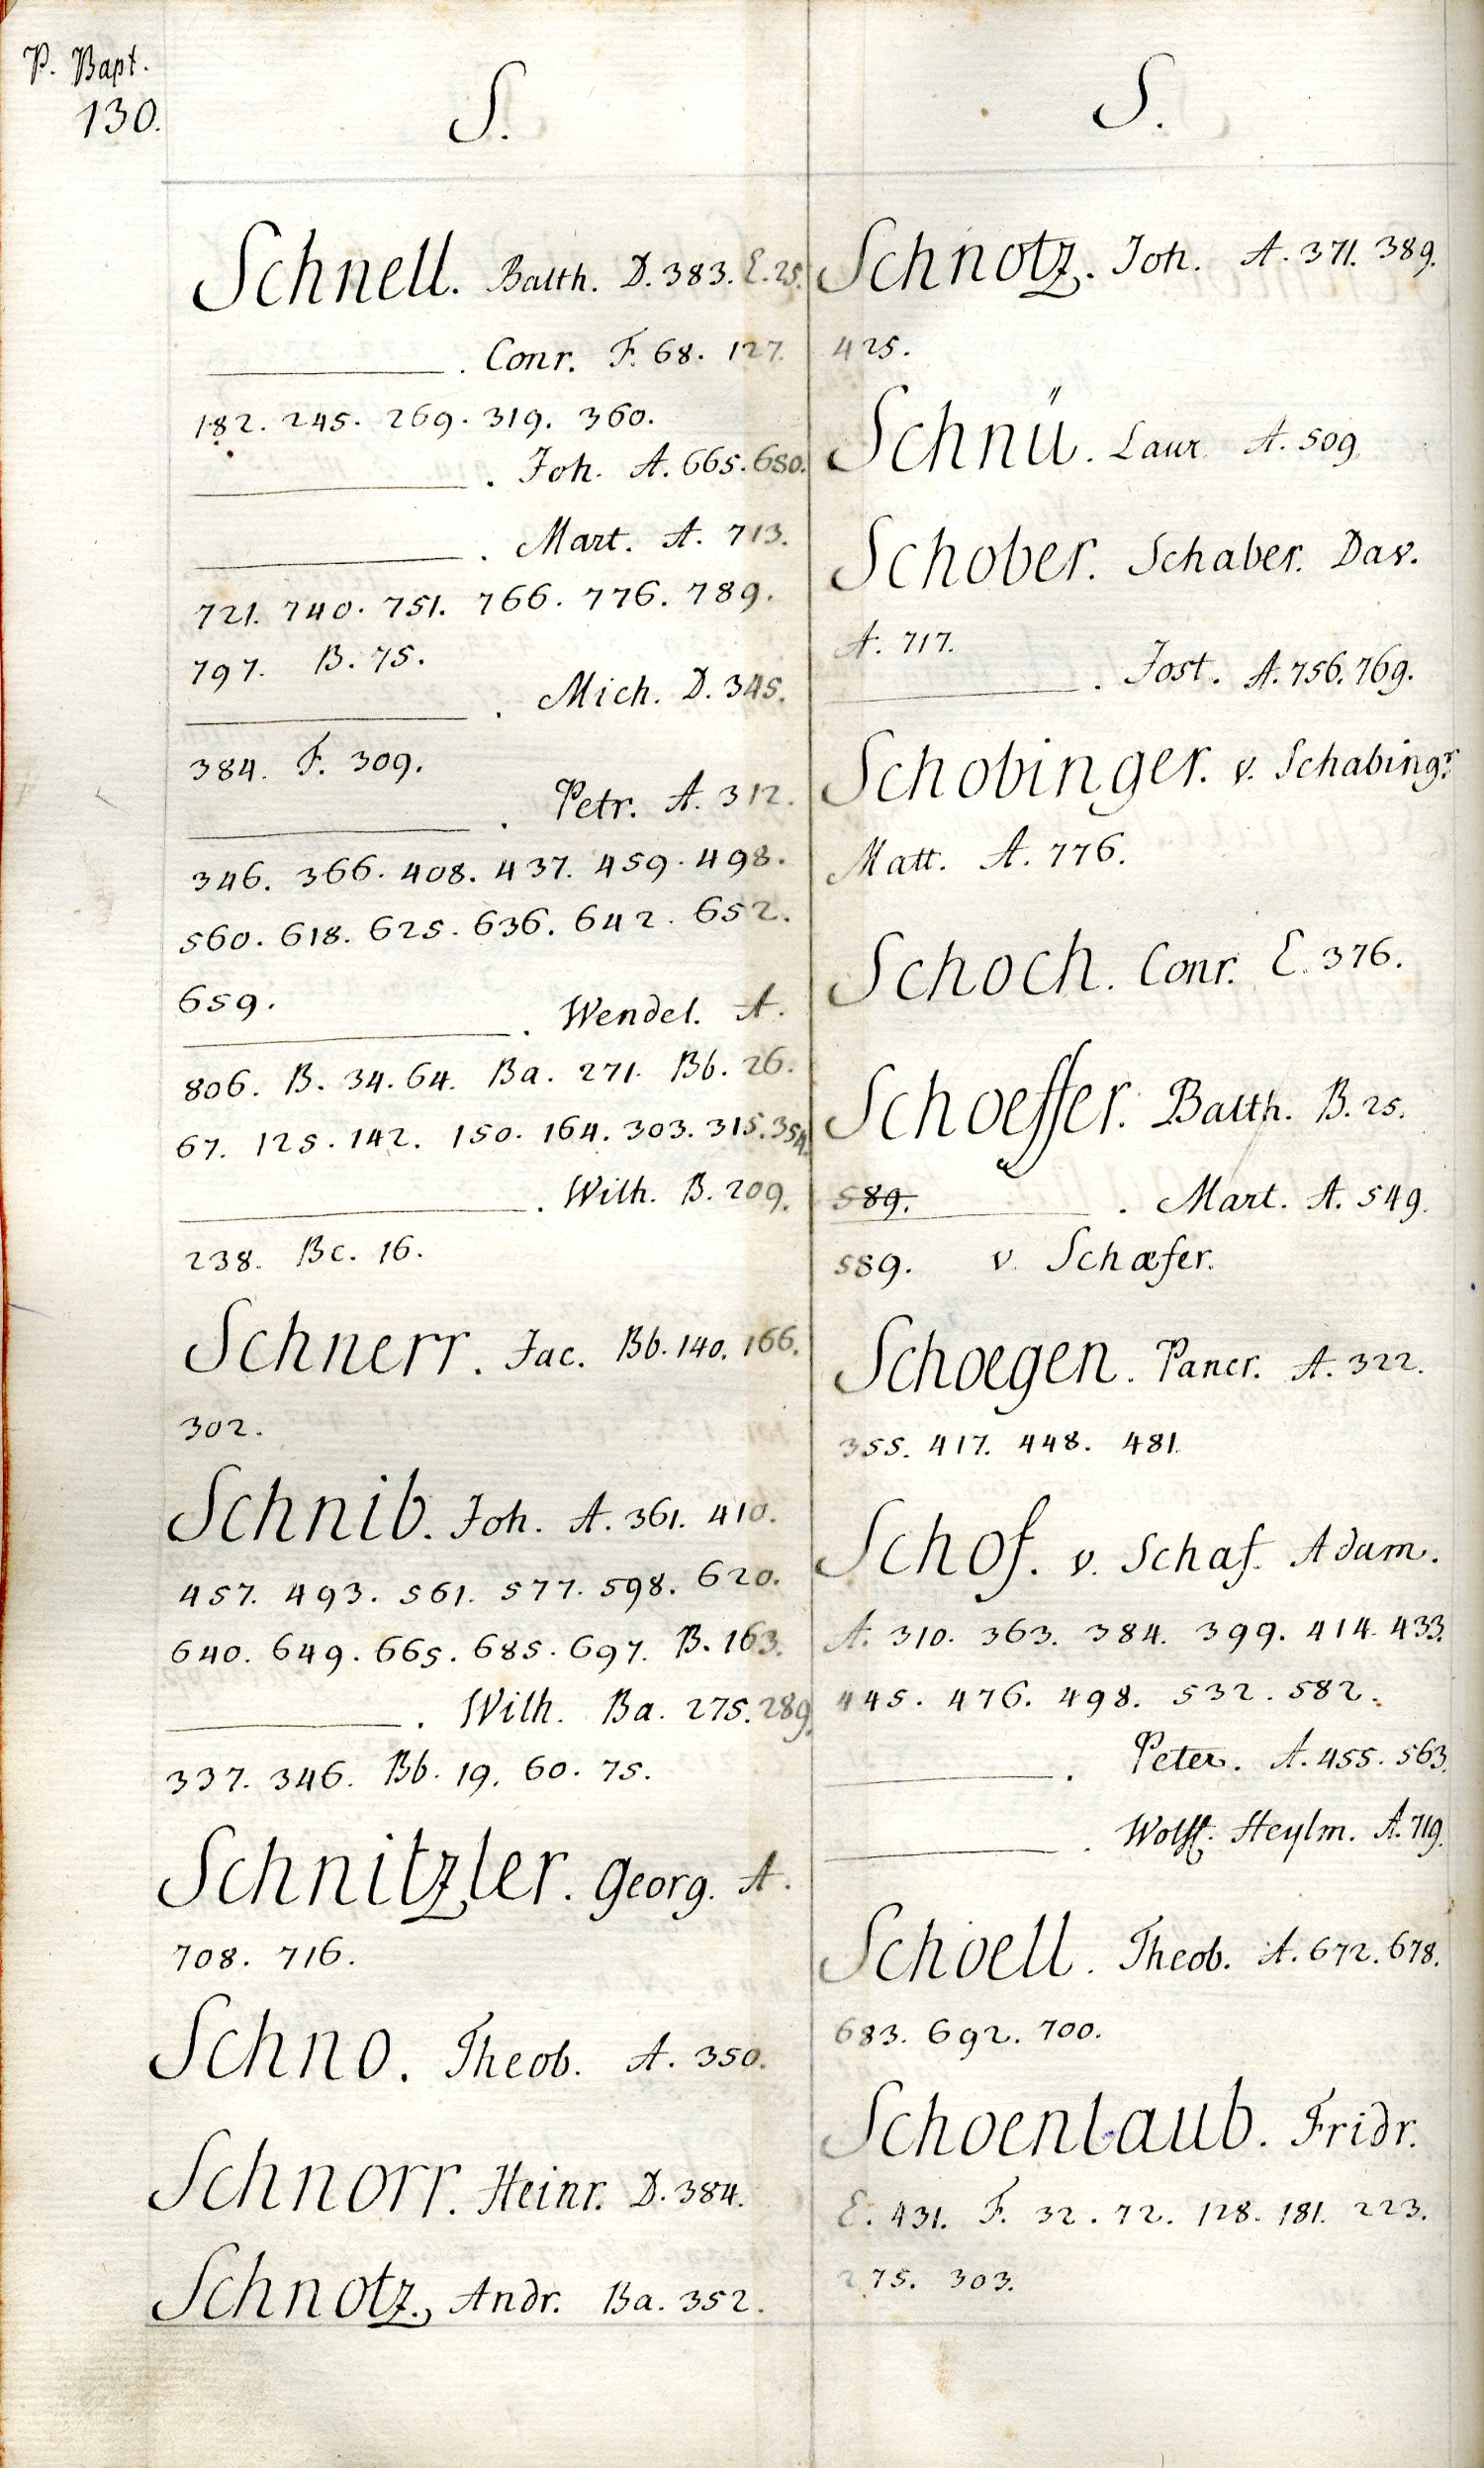 P. Bapt.
130.
S.
Schnell. Balth. D. 383. E. 25.
. Conr. F. 68. 127.
182. 245. 269. 319. 360.
. Joh. A. 665. 680.
. Mart. A. 713.
721. 740. 751. 766. 776. 789.
797. B. 75.
. Mich. D. 345.
384. F. 309.
. Petr. A. 312.
346. 366. 408. 437. 459. 498.
560. 618. 625. 636. 642. 652.
659.
. Wendel. A.
806. B. 34. 64. Ba. 271. Bb. 26.
67. 125. 142. 150. 164. 303. 315. 354.
. Wilh. B. 209.
238. Bc. 16.
Schnerr. Jac. Bb. 140. 166.
302.
Schnib. Joh. A. 361. 410.
457. 493. 561. 577. 598. 620.
640. 649. 665. 685. 697. B. 163.
. Wilh. Ba. 275. 289.
337. 346. Bb. 19. 60. 75.
Schnitzler. Georg. A.
708. 716.
Schno. Theob. A. 350.
Schnorr. Heinr. D. 384.
Schnotz. Andr. Ba. 352.
S.
Schnotz. Joh. A. 371. 389.
425.
Schnü. Laur. A. 509.
Schober. Schaber. Dav.
A. 717.
. Jost. A. 756. 769.
Schobinger. v. Schabingr.
Matt. A. 776.
Schoch. Conr. E. 376.
Schoeffer. Balth. B. 25.
589. . Mart. A. 549.
589. v. Schæfer.
Schœgen. Pancr. A. 322.
355. 417. 448. 481.
Schof. v. Schaf. Adam.
A. 310. 363. 384. 399. 414. 433.
445. 476. 498. 532. 582.
. Peter. A. 455. 563.
. Wolff. Heylm. A. 719.
Schoell. Theob. A. 672. 678.
683. 692. 700.
Schoenlaub. Fridr.
E. 431. F. 32. 72. 128. 181. 223.
275. 303.